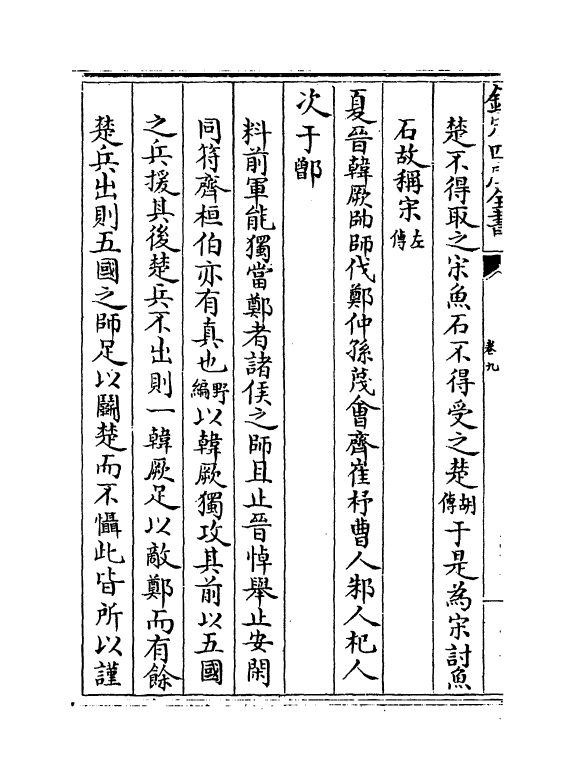 欽定四庫全書
卷九
楚不得取之宋魚石不得受之楚胡傳于是為宋討魚
石故稱宋左傳
夏晉韓厥帥師伐鄭仲孫蔑會齊崔杼曹人邾人杞人
次于鄫
料前軍能獨當鄭者諸侯之師且止晉悼舉止安閑
同符齊桓伯亦有真也野編以韓厥獨攻其前以五國
之兵援其後楚兵不出則一韓厥足以敵鄭而有餘
楚兵出則五國之師足以鬭楚而不懾此皆所以謹